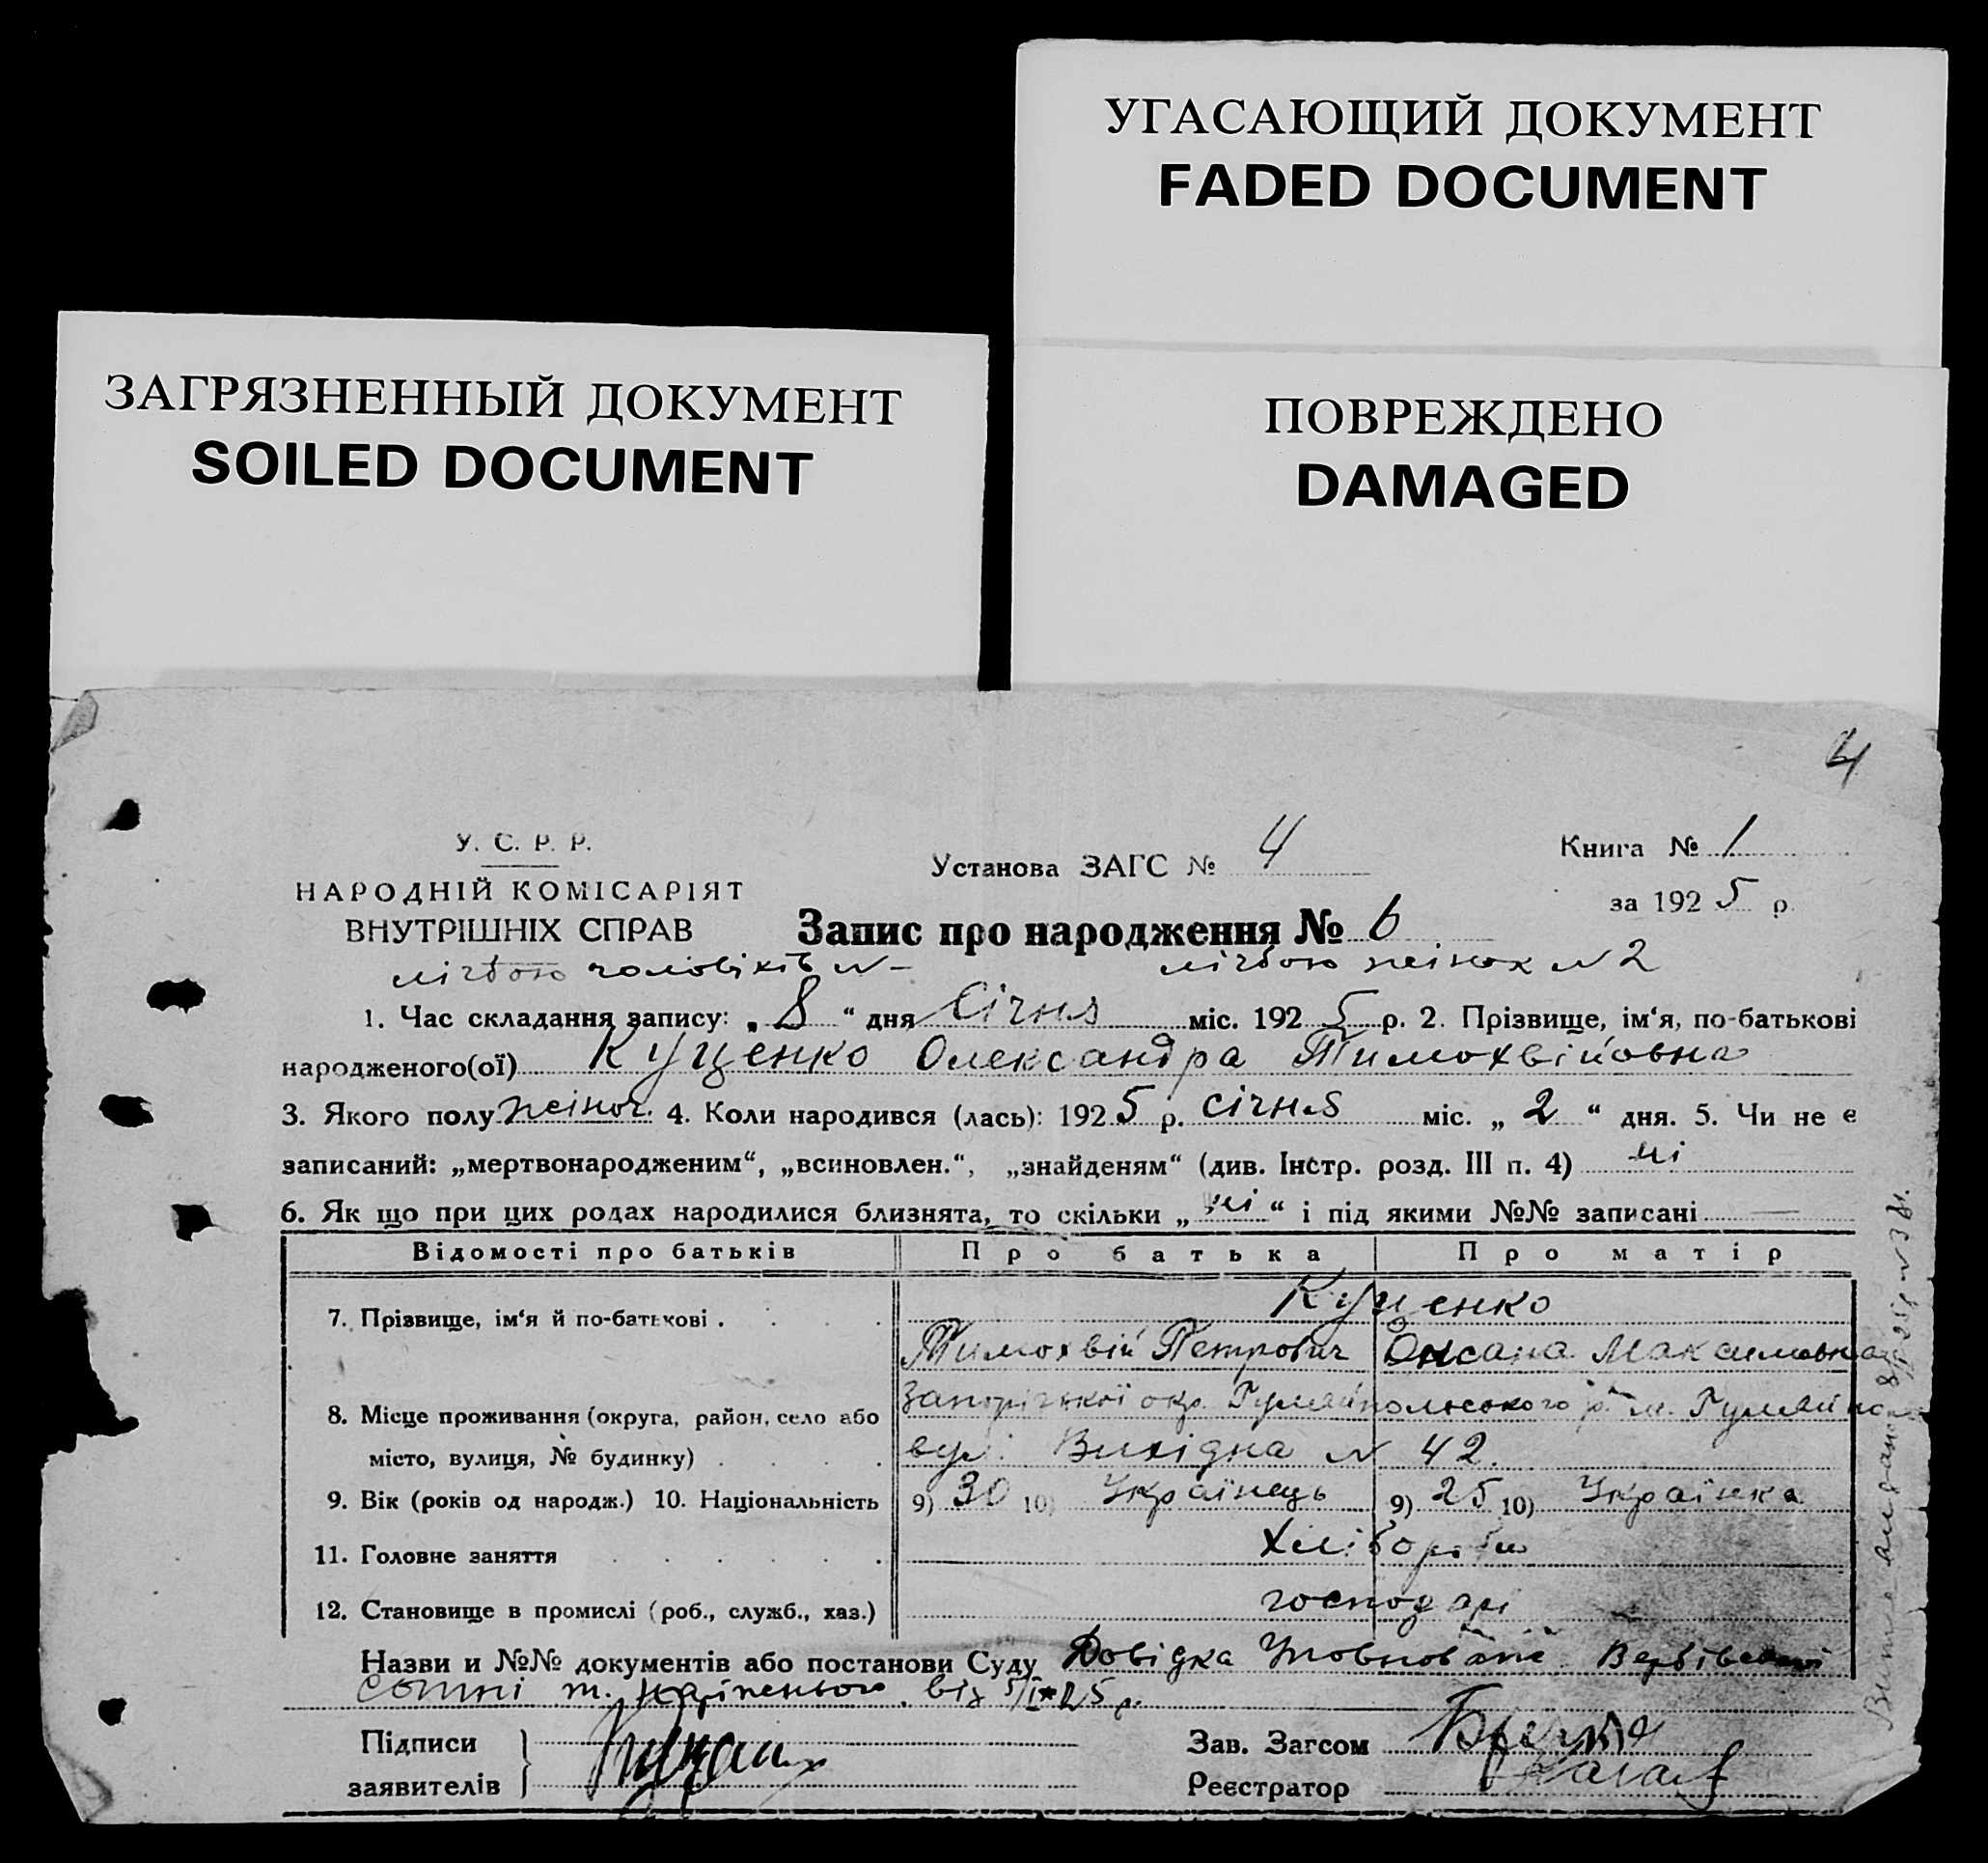 УГАСАЮЩИЙ ДОКУМЕНТ
FADED DOCUMENT
ЗАГРЯЗНЕННЫЙ ДОКУМЕНТ
SOILED DOCUMENT
ПОВРЕЖДЕНО
DAMAGED
4
У. С. Р. Р.
НАРОДНІЙ КОМІСАРІЯТ
ВНУТРІШНІХ СПРАВ
Установа ЗАГС № 4
Книга № 1
за 1925 р.
Запис про народження № 6
лічбою чоловіків № – лічбою жінок № 2
1. Час складання запису: „ 8 “ дня Січня міс. 1925 р. 2. Прізвище, ім‘я, по-батькові
народженого(ої) Куценко Олександра Тимохвійовна
3. Якого полу жіноч. 4. Коли народився (лась): 1925 р. січня міс. „ 2 “ дня. 5. Чи не є
записаний: „мертвонародженим“, „всиновлен.“, „знайденям“ (див. Інстр. розд. III п. 4) ні
6. Як що при цих родах народилися близнята, то скільки „ ні “ і під якими №№ записані —
Відомості про батьків Про батька Про матір
7. Прізвище, ім‘я й по-батькові . Куценко
Тимохвій Петрович Оксана Максимовна
8. Місце проживання (округа, район, село або Запорізької окр. Гуляйпольського р. м. Гуляйпо
місто, вулиця, № будинку) вул. Вихідна № 42.
9. Вік (років од народж.) 10. Національність 9) 30 10) Українець 9) 25 10) Українка
11. Головне заняття Хлібороби
12. Становище в промислі (роб., служб., хаз.) господарі
Назви и №№ документів або постанови Суду Довідка Уповнов
сотні т. від 5/I-25 р.
Підписи
заявителів
Зав. Загсом
Реєстратор